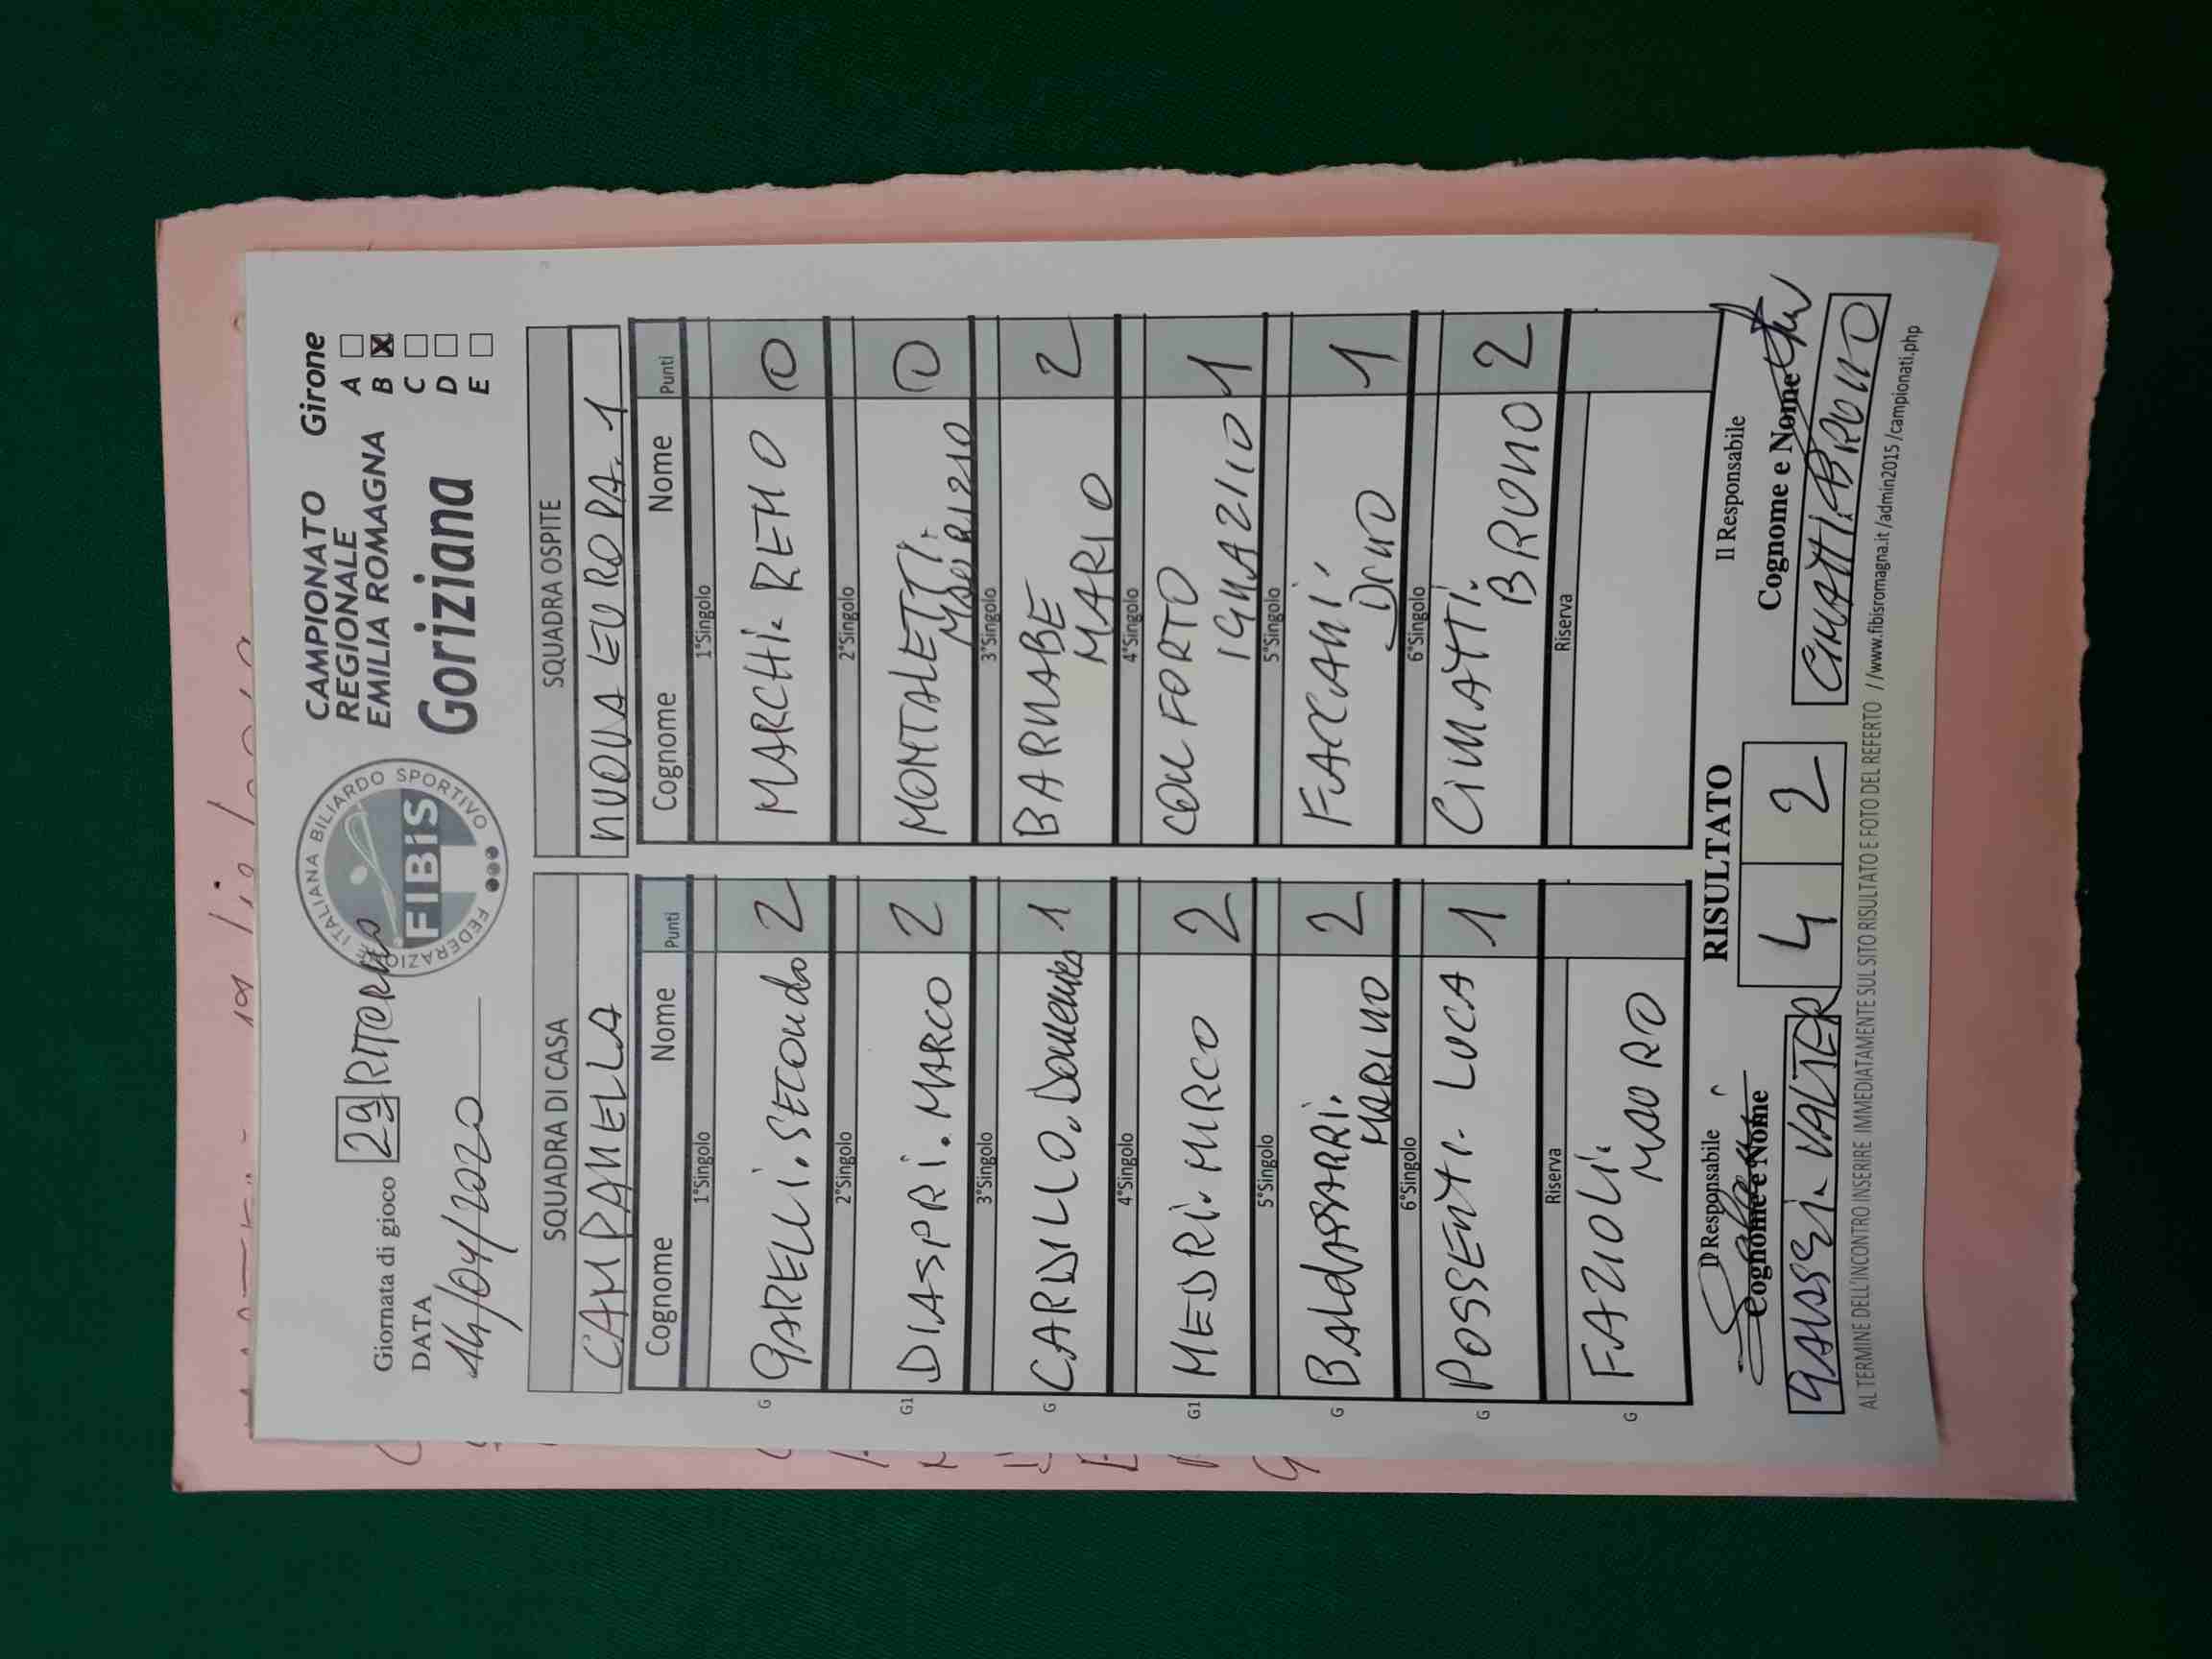 Giornata di gioco 29 RITORNO
DATA
14/04/2020
FEDERAZIONE ITALIANA BILIARDO SPORTIVO
FIBiS
CAMPIONATO
REGIONALE
EMILIA ROMAGNA
Goriziana
Girone
A
B X
C
D
E
SQUADRA DI CASA
CAMPANELLA
Cognome Nome Punti
1°Singolo
G GARELLI. SECONDO 2
2°Singolo
G1 DIASPRI. MARCO 2
3°Singolo
G CARDILLO. Domenico 1
4°Singolo
G1 MEDRI. MIRCO 2
5°Singolo
G BALDASSARRI. 2
MARINO
6°Singolo
G POSSENTI. LUCA 1
Riserva
G FAZIOLI.
MAURO
SQUADRA OSPITE
NUOVA EUROPA. 1
Cognome Nome Punti
1°Singolo
MARCHI. REMO 0
2°Singolo
MONTALETTI. 0
MAURIZIO
3°Singolo
BARNABE 2
MARIO
4°Singolo
CONFORTO
IGNAZIO 1
5°Singolo
FACCANI 1
DINO
6°Singolo
CIMATTI. 2
BRUNO
Riserva
Il Responsabile
Cognome e Nome
VALTER
RISULTATO
4 2
Il Responsabile
Cognome e Nome
CIMATTI. BRUNO
AL TERMINE DELL'INCONTRO INSERIRE IMMEDIATAMENTE SUL SITO RISULTATO E FOTO DEL REFERTO //www.fibisromagna.it /admin2015 /campionati.php